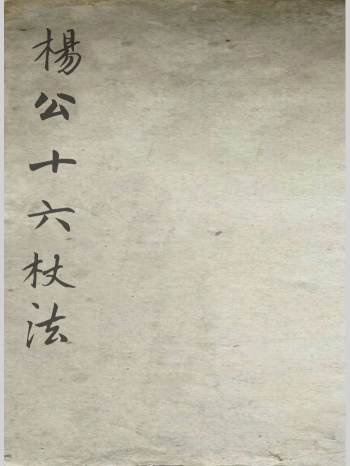 楊公十六杖法